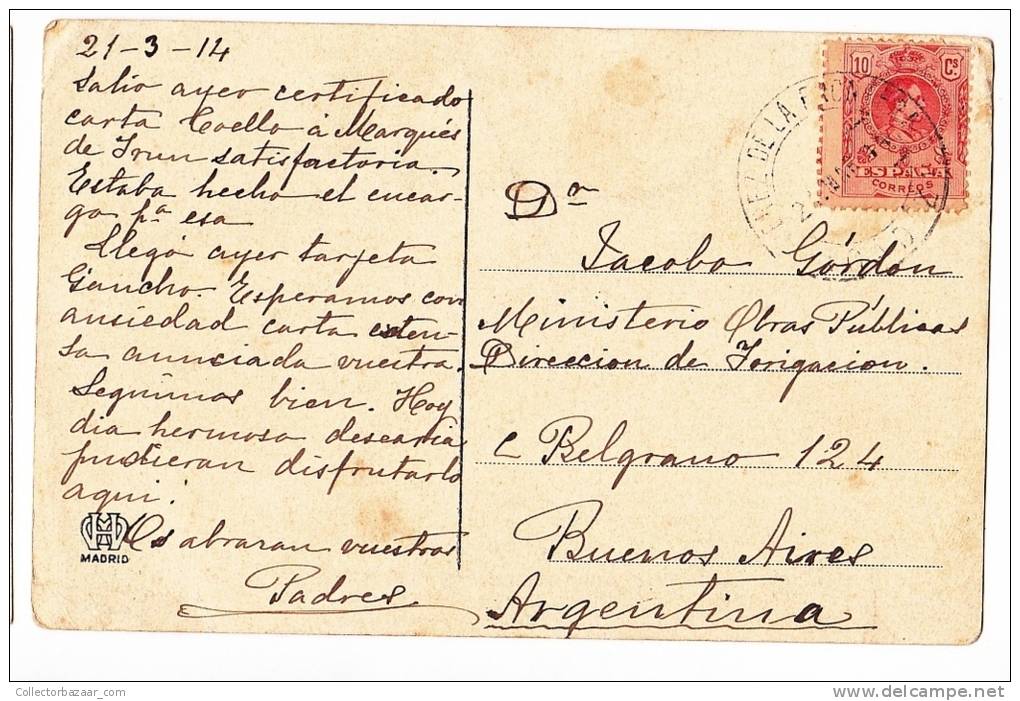 21-3-14
Salio ayer certificado
carta Coello á Marqués
de Irun satisfactoria.
Estaba hecho el encar-
go pª esa
Llegó ayer tarjeta
Gaucho. Esperamos con
ansiedad carta exten-
sa anunciada vuestra.
Seguimos bien. Hoy
dia hermoso desearia
pudieran disfrutarlo
aqui!
Os abrazan vuestros
Padres
MADRID
10 Cs
ESPAÑA
CORREOS
DE LA
Jacobo Górdon
Ministerio Obras Públicas
Direccion de Irrigacion.
c Belgrano 124
Buenos Aires
Argentina
Collectorbazaar_com
delcampe.net